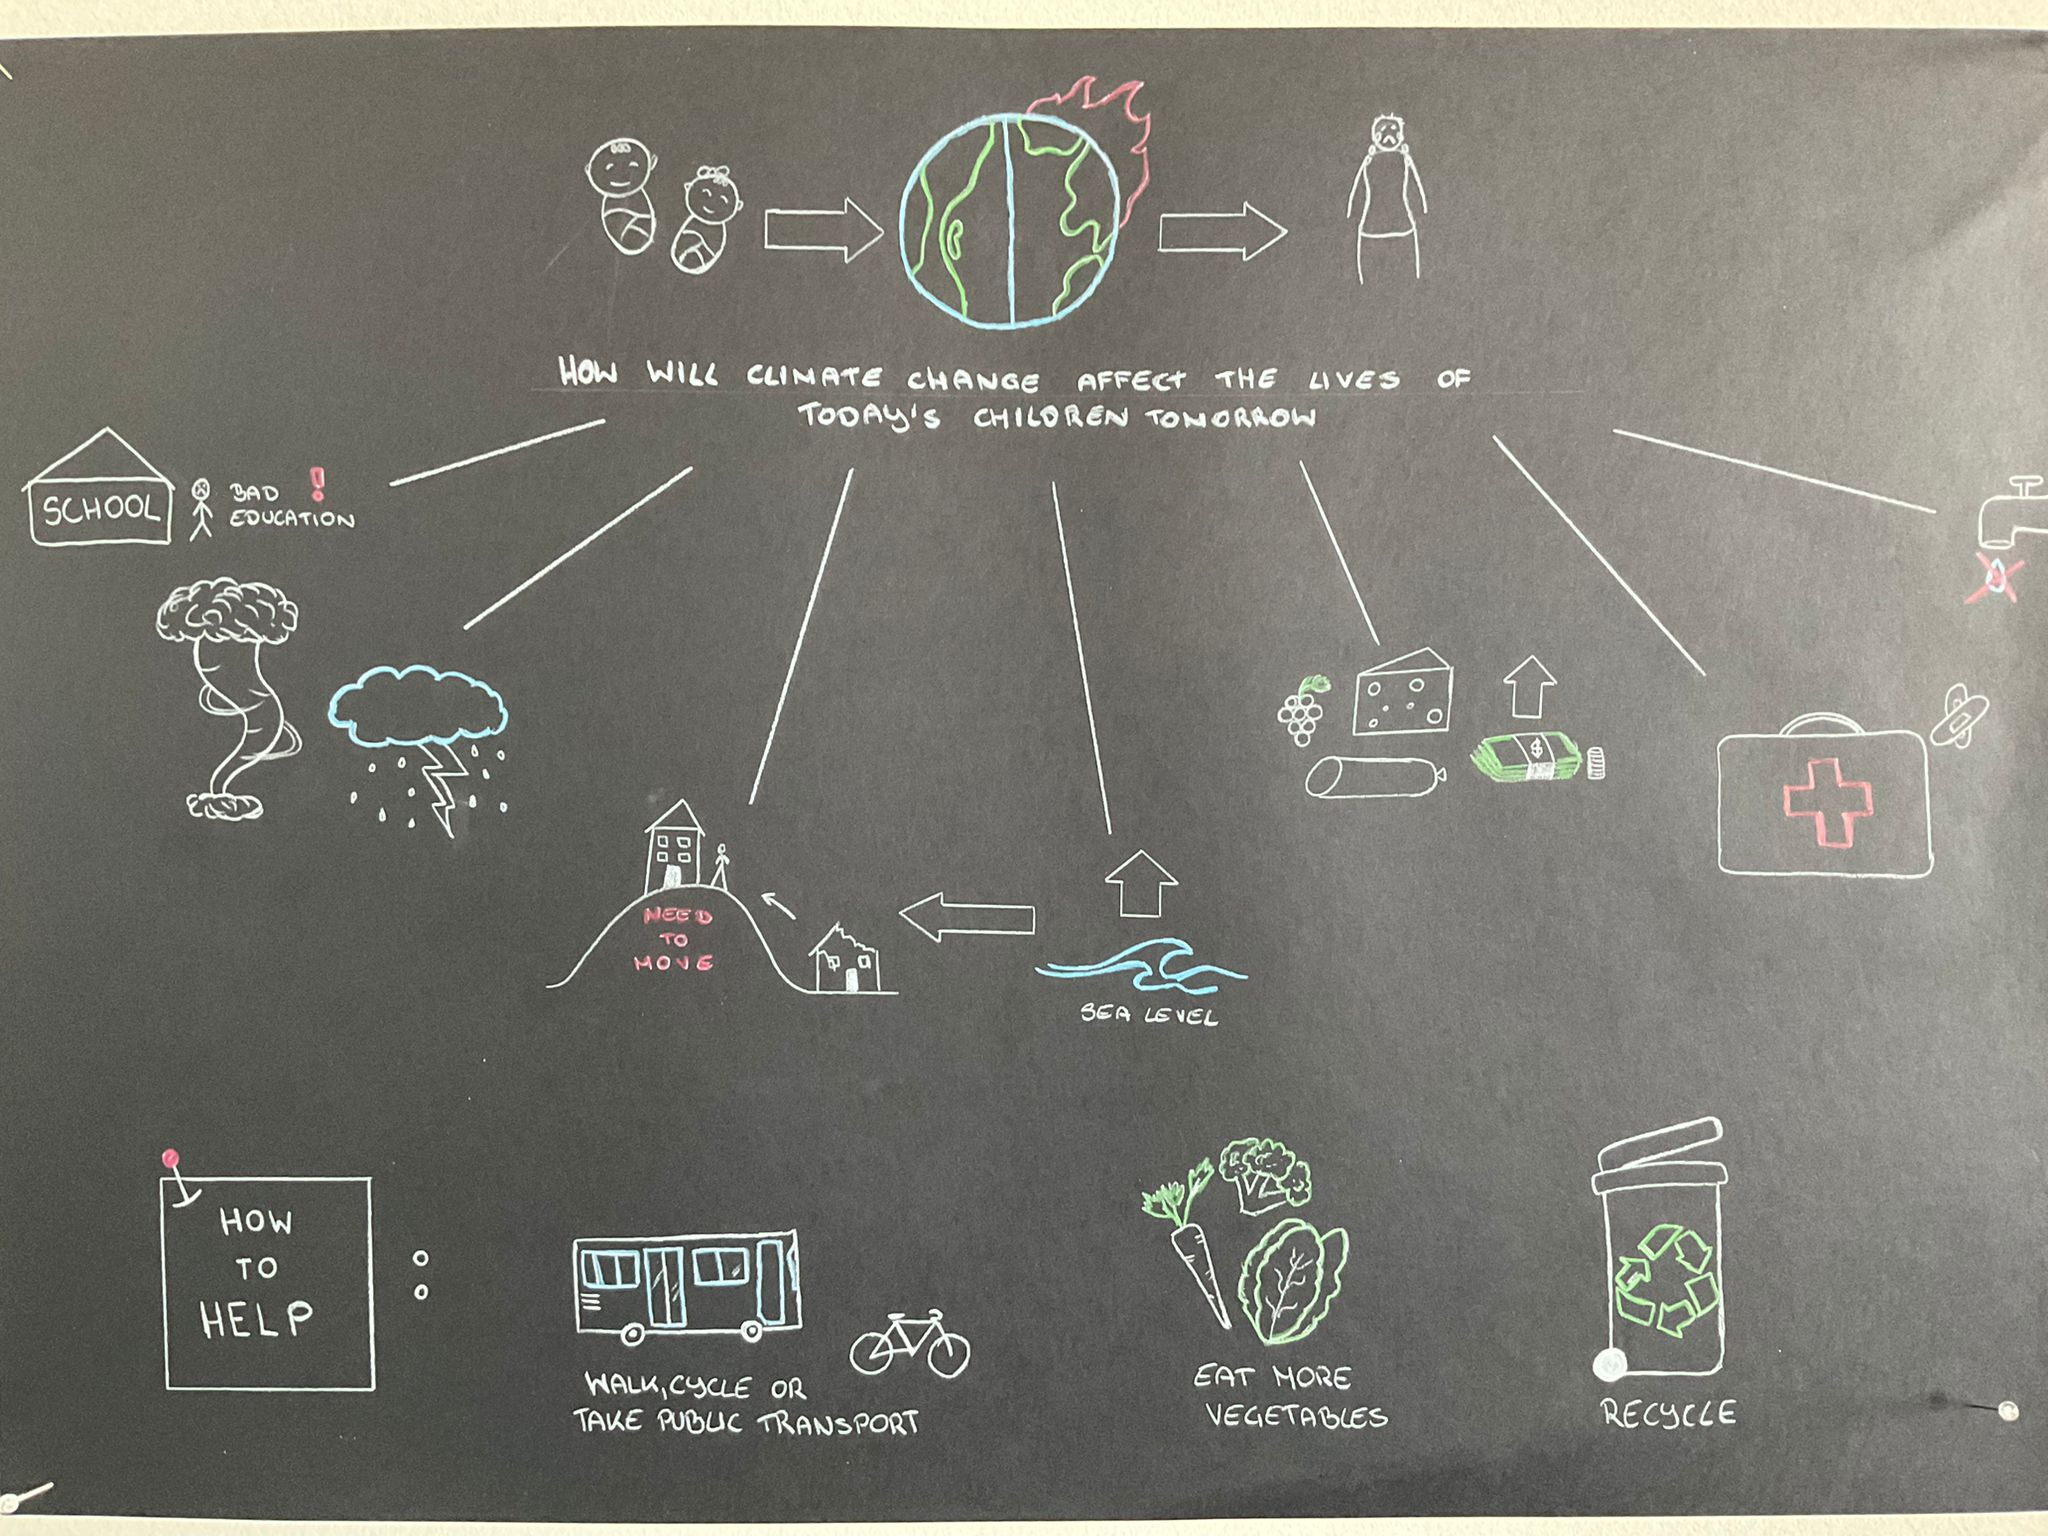 HOW WILL CLIMATE CHANGE AFFECT THE LIVES OF
TODAY'S CHILDREN TOMORROW
SCHOOL
BAD !
EDUCATION
$
NEED
TO
MOVE
SEA LEVEL
HOW
TO
HELP
:
WALK, CYCLE OR
TAKE PUBLIC TRANSPORT
EAT MORE
VEGETABLES
RECYCLE